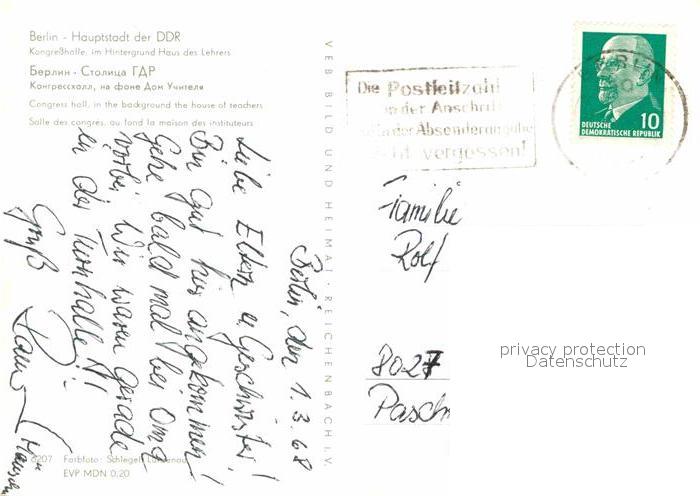 Berlin - Hauptstadt der DDR
Kongreßhalle, im Hintergrund Haus des Lehrers
Берлин - Столица ГДР
Конгрессхолл, на фоне Дом Учителя
Congress hall, in the background the house of teachers
Salle des congrès, au fond la maison des instituteurs
Berlin, den 1.3.68
Liebe Eltern u Geschwister!
Bin gut hier angekommen!
Gehe bald mal bei Oma
vorbei. Wir waren gerade
in der Turnhalle!!
Gruß
6207 Farbfoto: Schlegel,
EVP MDN 0,20
VEB BILD UND HEIMAT · REICHENBACH I. V.
Die Postleitzahl
in der Anschrift
in der Absenderangabe
nicht vergessen!
BERLIN
10
DEUTSCHE
DEMOKRATISCHE REPUBLIK
Familie
Rolf
8027
Pasch
privacy protection
Datenschutz